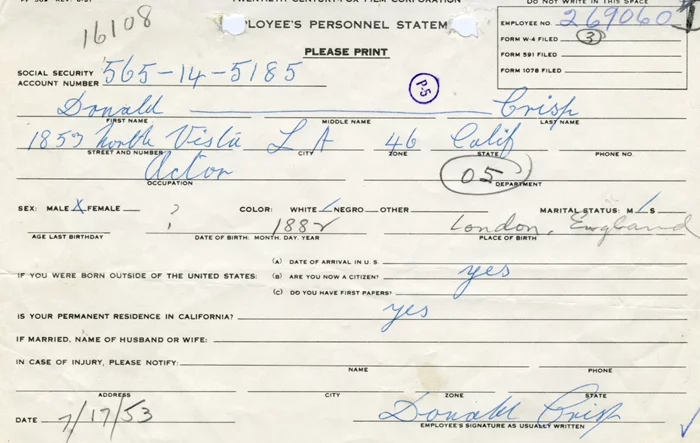 TWENTIETH CENTURY-FOX FILM CORPORATION
DO NOT WRITE IN THIS SPACE
16108
PLOYEE'S PERSONNEL STATEM
EMPLOYEE NO. 269060
PLEASE PRINT
FORM W-4 FILED 3
FORM 591 FILED
FORM 1078 FILED
SOCIAL SECURITY
ACCOUNT NUMBER 565-14-5185
P-5
Donald Crisp
FIRST NAME MIDDLE NAME LAST NAME
1853 North Vista L A 46 Calif
STREET AND NUMBER CITY ZONE STATE PHONE NO.
Actor 05
OCCUPATION DEPARTMENT
SEX: MALE X FEMALE COLOR: WHITE ✓ NEGRO OTHER MARITAL STATUS: M ✓ S
? 1882 London, England
AGE LAST BIRTHDAY DATE OF BIRTH: MONTH, DAY, YEAR PLACE OF BIRTH
(A) DATE OF ARRIVAL IN U.S.
IF YOU WERE BORN OUTSIDE OF THE UNITED STATES: (B) ARE YOU NOW A CITIZEN? yes
(C) DO YOU HAVE FIRST PAPERS?
IS YOUR PERMANENT RESIDENCE IN CALIFORNIA? yes
IF MARRIED, NAME OF HUSBAND OR WIFE:
IN CASE OF INJURY, PLEASE NOTIFY:
NAME PHONE
ADDRESS CITY ZONE STATE
DATE 7/17/53 Donald Crisp
EMPLOYEE'S SIGNATURE AS USUALLY WRITTEN